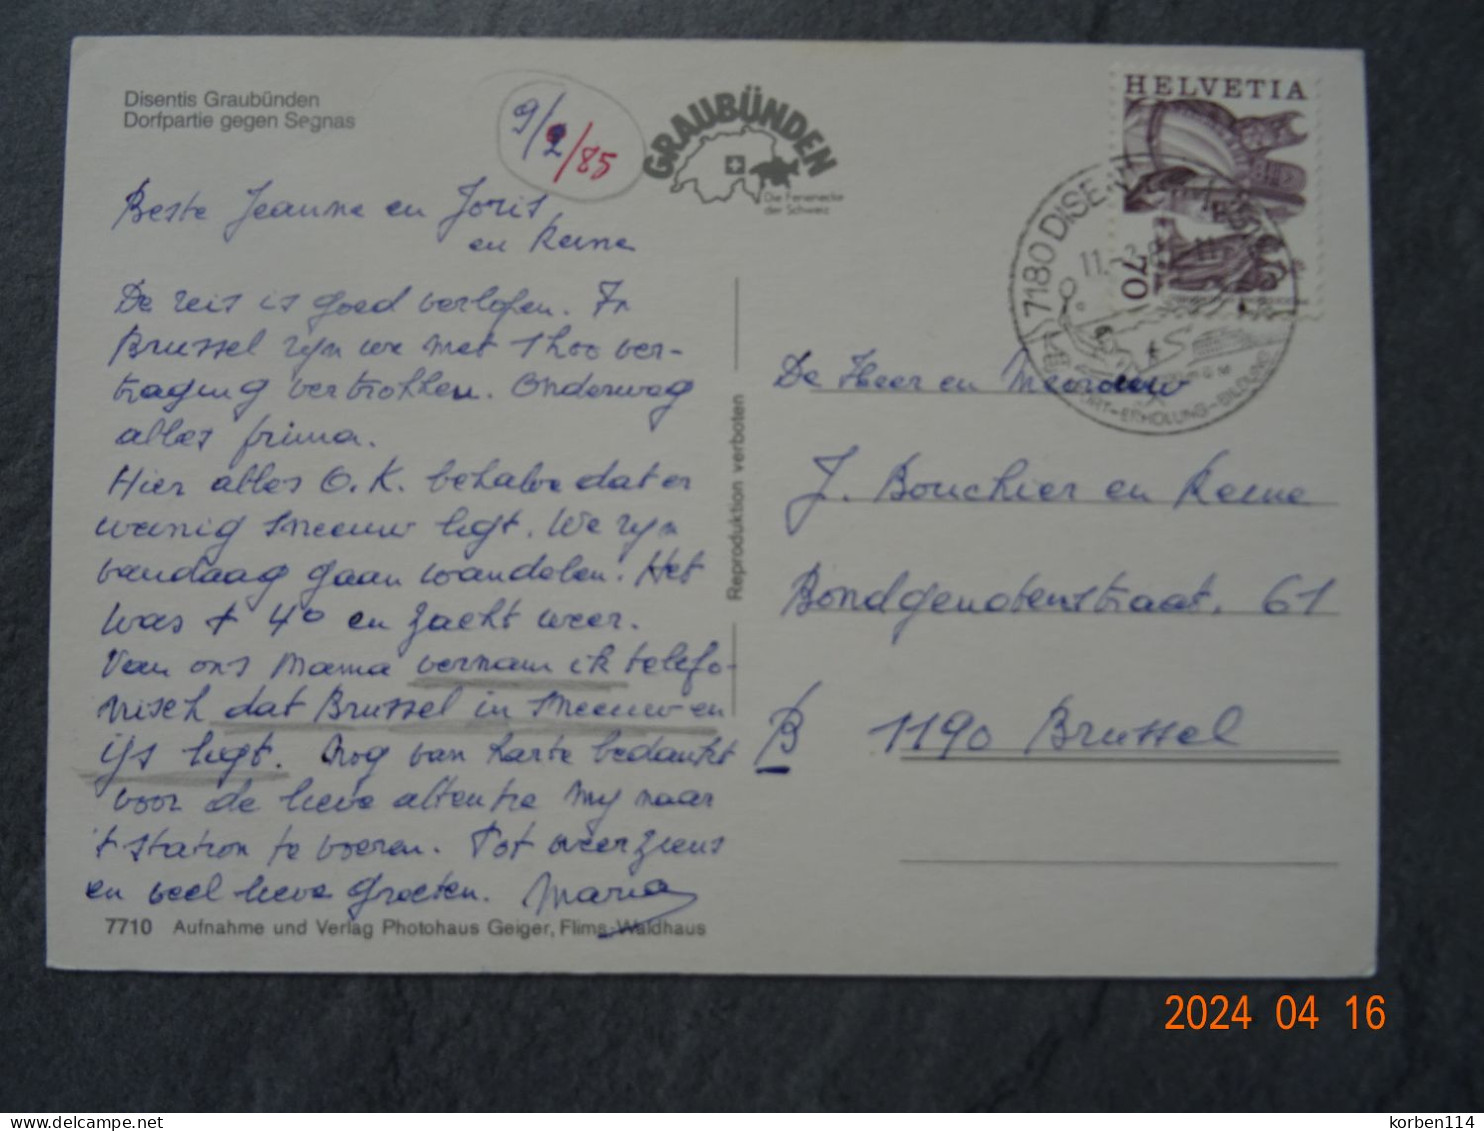 Disentis Graubünden
Dorfpartie gegen Segnas
9/2/85
GRAUBÜNDEN
Die Ferienecke
der Schweiz
HELVETIA
70
7180 DISENTIS
SPORT-ERHOLUNG-BILDUNG
Beste Jeanne en Joris
en
De reis is goed verlopen. In
Brussel zijn we met 1 hoo ver-
traging vertrokken. Onderweg
alles prima.
Hier alles O.K. behalve dat er
weinig sneeuw ligt. We zijn
vandaag gaan wandelen. Het
was + 4° en zacht weer.
Van ons Mama vernam ik telefo-
nisch dat Brussel in sneeuw en
ijs ligt. Nog van harte bedankt
voor de lieve attentie my naar
't station te voeren. Tot weerziens
en veel lieve groeten. Maria
7710 Aufnahme und Verlag Photohaus Geiger, Flims-Waldhaus
Reproduktion verboten
De Heer en Mevrouw
J. Bouchier en
Bondgenotenstraat. 61
B 1190 Brussel
2024 04 16
korben114